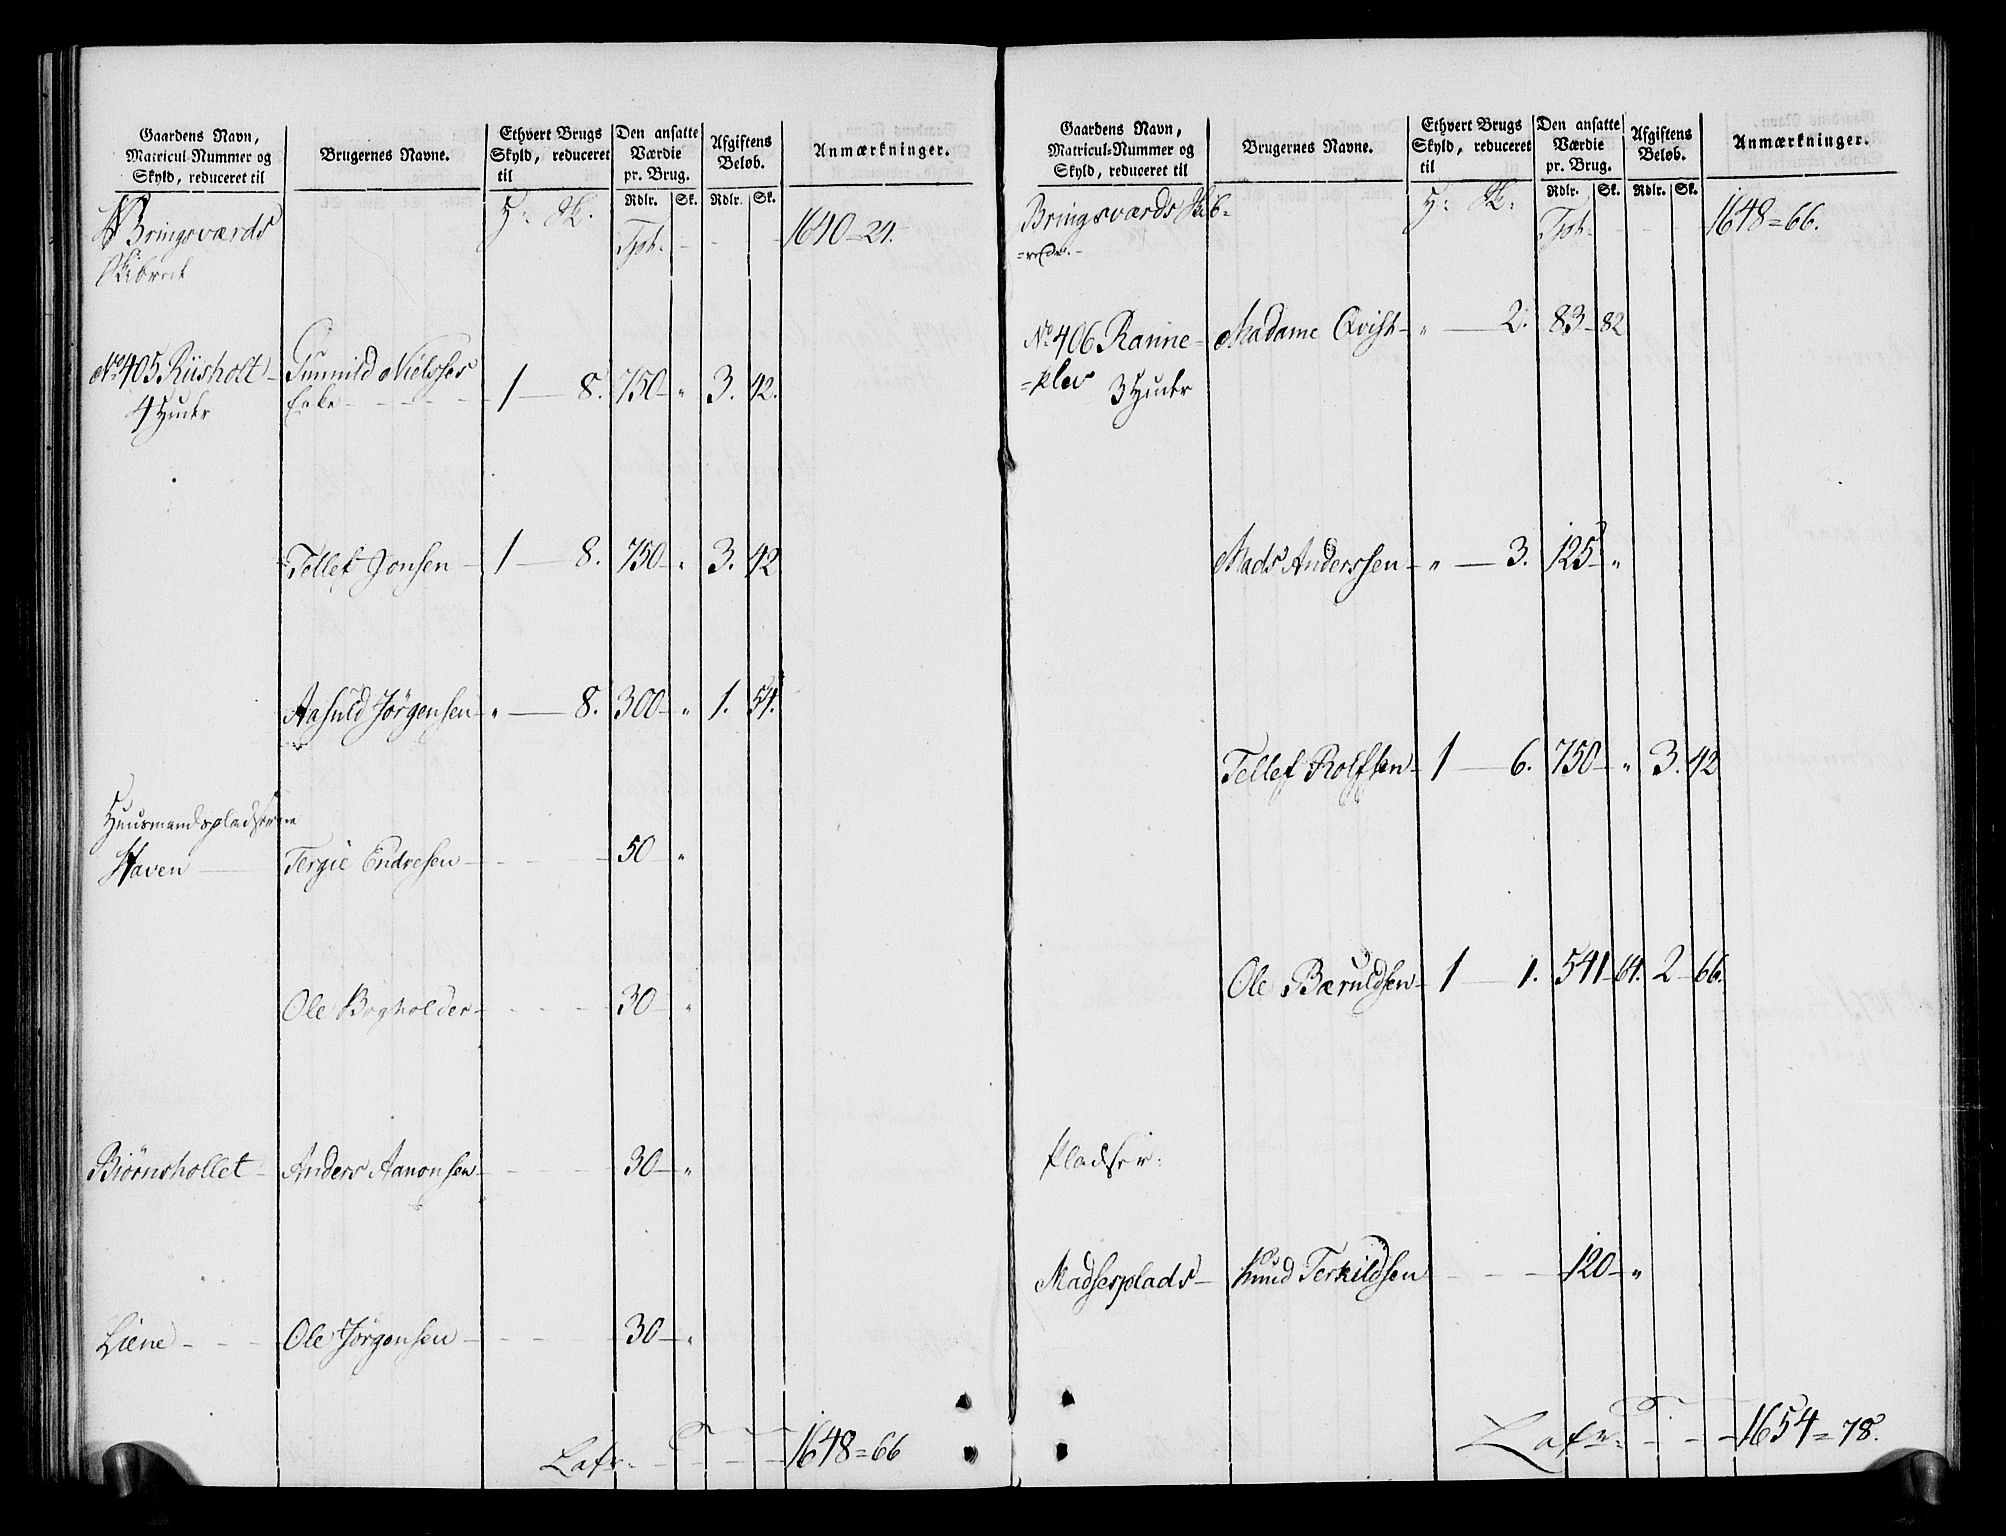 Gaardens Navn,
Matricul-Nummer og
Skyld, reduceret til
Brugernes Navne.
Ethvert Brugs
Skyld, reduceret
til
Den ansatte
Værdie
pr. Brug.
Afgiftens
Beløb.
Anmærkninger.
Rdlr. Sk. Rdlr. Sk.
Bringsværds
Skibred
H: Sk:
Tpt. - - - 1640 = 24.
No 405 Riisholt
4 Huder
Gunnild Nielsses
Enke - - - 1 — 8. 750 - " 3. 42.
Tellef Jonsen - 1 — 8. 750 - " 3. 42
Aasuld Jørgensen - " — 8. 300 - " 1. 54.
Huusmandspladserne
Haven — Tergie Endresen - - - - 50 - "
Ole Bogholder - - - - 30 - "
Biørnshollet - Anders Aanonsen - - - - 30 - "
Liene - - - Ole Jørgensen - - - - 30 - "
Lafr: - - - - 1648 = 66
Gaardens Navn,
Matricul-Nummer og
Skyld, reduceret til
Brugernes Navne.
Ethvert Brugs
Skyld, reduceret
til
Den ansatte
Værdie
pr. Brug.
Afgiftens
Beløb.
Anmærkninger.
Rdlr. Sk. Rdlr. Sk.
Bringsværds Skib-
=rede. -
H: Sk:
Tpt. - - - 1648 = 66.
No 406 Ranne-
=klev 3 Huder
Madame Qvist - " — 2. 83 - 82
Mads Anderssen - " — 3. 125 - "
Tellef Rolfsen - 1 — 6. 750 - " 3. 42
Ole Bæruldsen - 1 — 1. 541 - 64. 2 - 66.
Pladser:
Madsesplads - Knud Terkildsen - - - 120 - "
Lafr: - - - 1654 = 78.